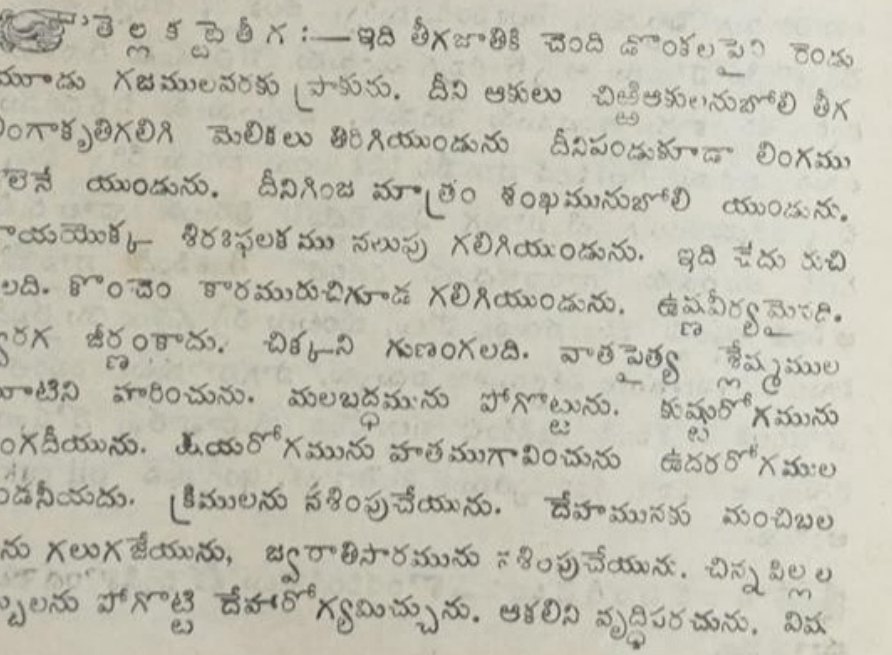 తెల్ల కట్టె తీగ :—ఇది తీగజాతికి చెంది డొంకలపైని రెండు
మూడు గజములవరకు ప్రాకును. దీని ఆకులు చిఱ్ఱిఆకులనుబోలి తీగ
లింగాకృతిగలిగి మెలికలు తిరిగియుండును దీనిపండుకూడా లింగము
లెనే యుండును. దీనిగింజ మాత్రం శంఖమునుబోలి యుండును.
శిరఃఫలకము నలుపు గలిగియుండును. ఇది చేదు రుచి
లది. కొంచెం కారమురుచిగూడ గలిగియుండును. ఉష్ణవీర్యమైనది.
జీర్ణంకాదు. చిక్కని గుణంగలది. వాత పైత్య శ్లేష్మముల
హరించును. మలబద్ధమును పోగొట్టును. కుష్టురోగమును
క్షయరోగమును హతముగావించును ఉదరరోగముల
క్రిములను నశింపుచేయును. దేహమునకు మంచిబల
ను గలుగజేయును, జ్వరాతిసారమును నశింపుచేయును. చిన్న పిల్లల
పోగొట్టి దేహారోగ్యమిచ్చును. ఆకలిని వృద్ధిపరచును. విష